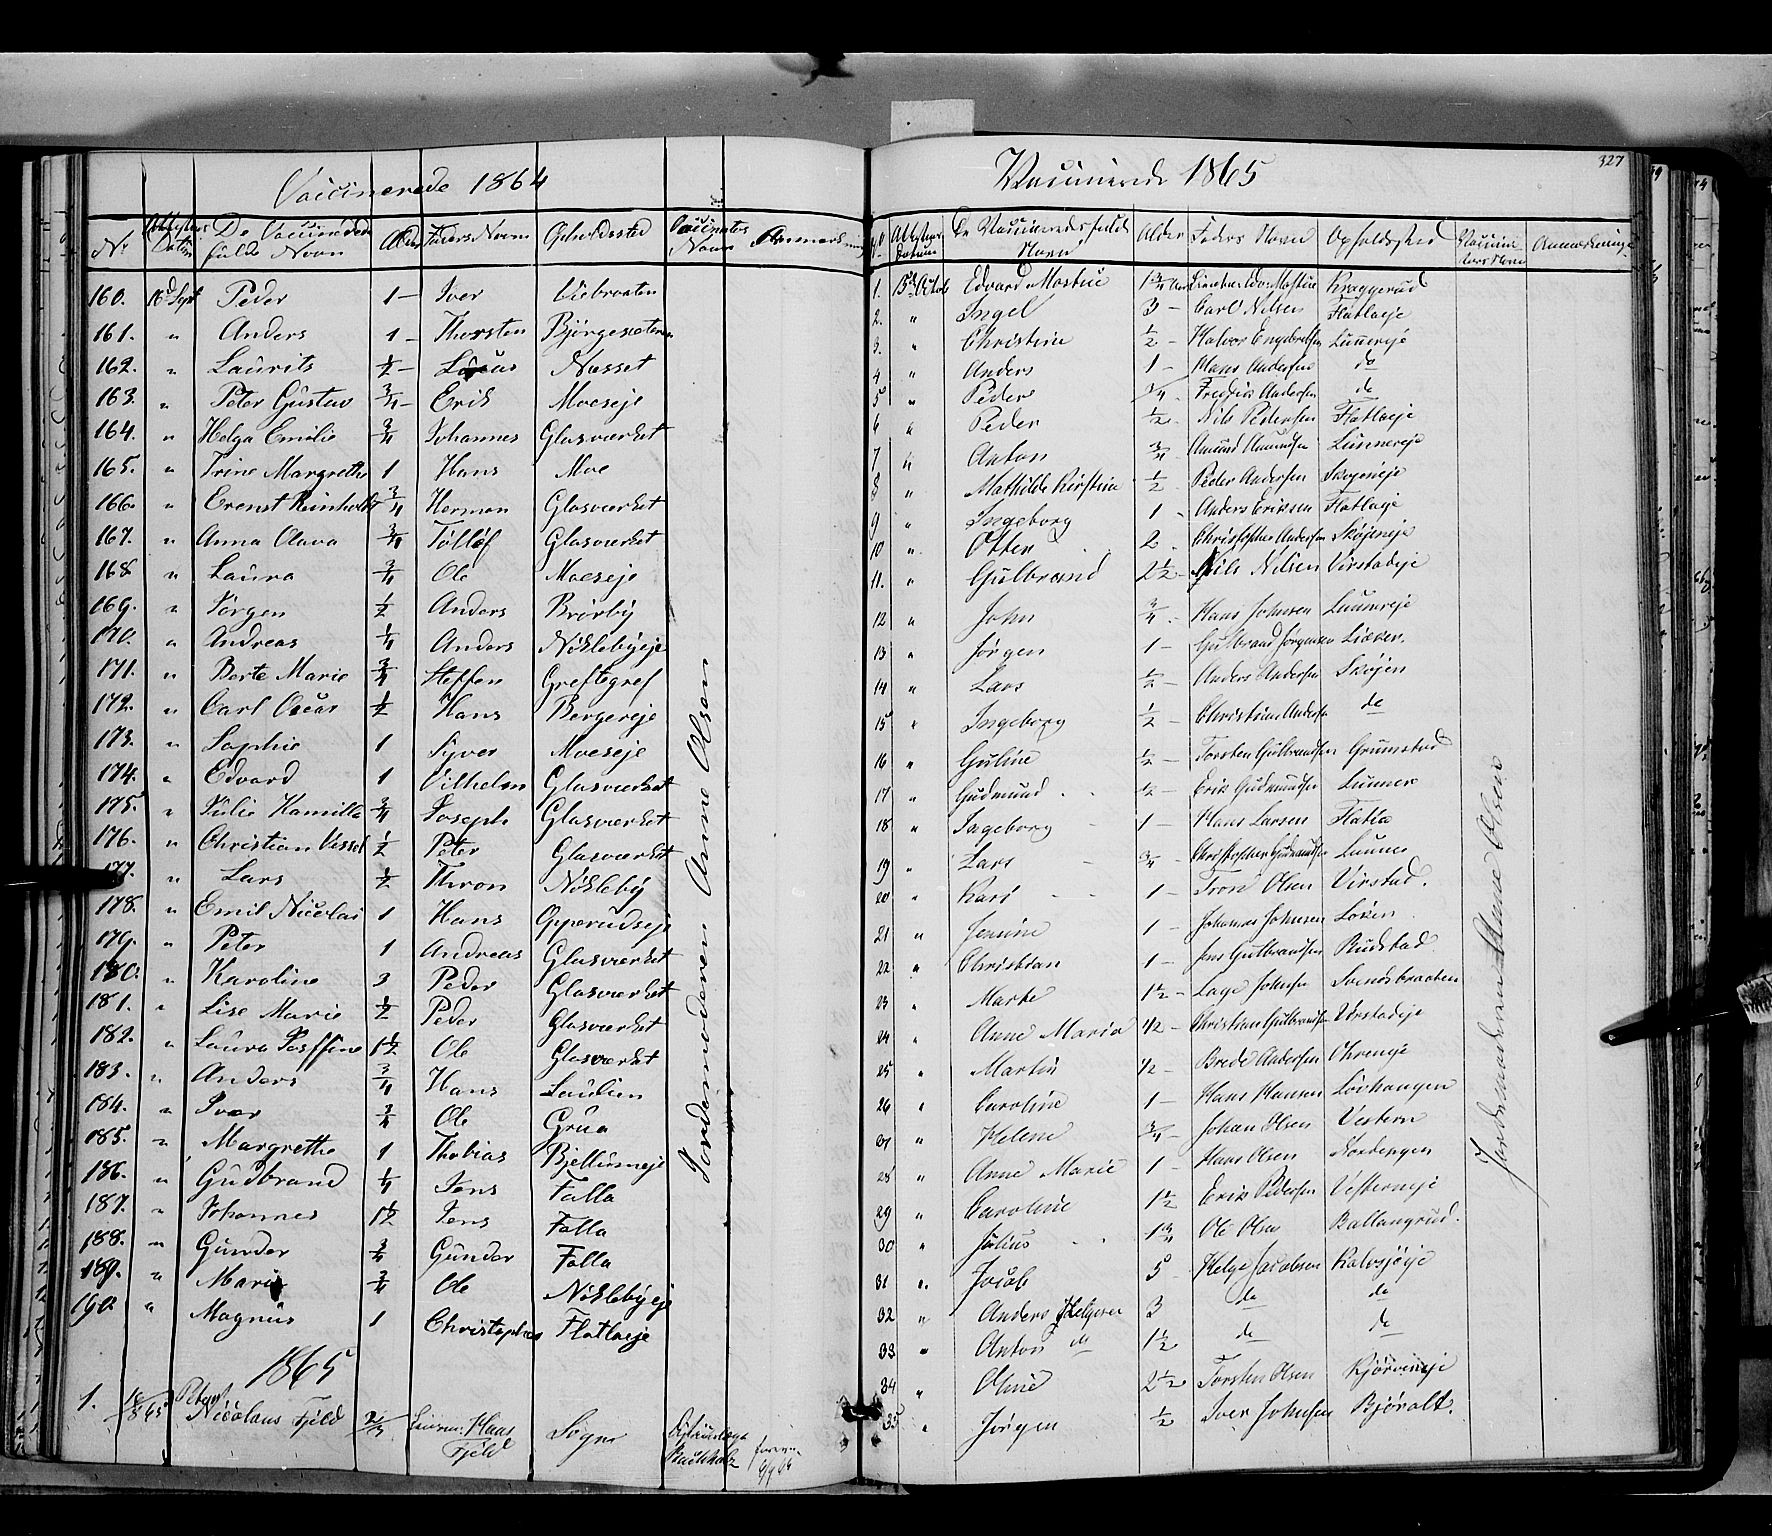 Vaccinerede 1864
No Attestens Datum De Vaccinerede fulde Navn Alder Faders Navn Opholdssted Vaccinators Navn Anmærkning
160. 16d Sept Peder 1 - Iver Viebraaten
161. " Anders 1 - Thorsten Bjørgesæteren
162. " Laurits 1/2 - Næsset
163. " Peter Gustav 3/4 - Erik Moeseje
164. " Helga Emilie 3/4 Johannes Glasværket
165. " Trine Margrethe 1 Hans Moe
166. " Erenst Reinholdt 3/4 Herman Glasværket
167. " Anna Olava 3/4 Tolløf Glasværket
168 " Laura 3/4 Ole Moeseje
169. " Jørgen 1/2 Anders Brørby
170. " Andreas 1/4 Anders Nøklebyeje
171. " Berte Marie 3/4 Steffen Greftegref
172. " Carl Oscar 1/2 Hans Bergereje
173. " Sophie 1 Syver Moeseje
174. " Edvard 1 Vilhelm Glasværket
175. " Julie Kamilla 3/4 Joseph Glasværket
176. " Christian Vessel 1/2 Peter Glasværket
177. " Lars 1/2 Thron Nøkleby
178. " Emil Nicolai 1 Hans Opperudseje
179. " Peter 1 Andreas Glasværket
180. " Karoline 3 Peder Glasværket
181. " Lise Marie 1/2 Peder Glasværket
182. " Laura Joffine 1 1/2 Ole Glasværket
183. " Anders 3/4 Hans Laulien
184. " Iver 3/4 Ole Grua
185. " Margrethe 1 Thobias Bjellumeje
186. " Gudbrand 1/4 Jens Falla
187. " Johannes 1 1/2 Jens Falla
188. " Gunder 3/4 Gunder Falla
189. " Marie 3/4 Ole Nøklebyeje
190. " Magnus 1 Christopher Flatlaeje
Jordemoderen Anne Olsen
1865
1. Peter Nicolaus Fjeld Hans Fjeld Sogn Buchholz
327
Vaccinerede 1865
No Attestens Datum De Vaccineredes fulde Navn Alder Faders Navn Opholdssted Vaccinators Navn Anmærkninger
1. 15d Octob Edvard Mostue 1 3/4 Mostue Kraggerud
2. " Ingel 3 - Carl Nilsen Flatlaeje
3. " Christine 1/2 - Halvor Engebretsen Lunnereje
4 " Anders 1 - Hans Andersen do
5 " Peder 3/4. Fredrik Andersen do
6 " Peder 1/2. Nils Pedersen Flatlaeje
7 " Anton 3/4 Amund Amundsen Lunnereje
8 " Mathilde Kirstine 1/2 Peder Andersen Skøieneje
9 " Ingeborg 1. Anders Eriksen Flatlaeje
10 " Otter 2. Christopher Andersen Skøieneje
11. " Gulbrand 2 1/2 - Nils Nilsen Virstadeje
12 " John 3/4. Hans Johnsen Lunnereje
13 " Jørgen 1 - Gulbrand Jørgensen Lieker.
14 " Lars 1/2 - Anders Andersen Skøjen
15 " Ingeborg 1/2 - Christian Andersen do
16 " Guline 1/2 - Torsten Gulbrandsen Grumstad
17 " Gudmund 1/2 - Erik Gudmundsen Lunner
18 " Ingeborg 1 - Hans Larsen Flatla
19 " Lars 3/4 - Christopher Gudmundsen Lunner
20 " Kari 1 - Tron Olsen Virstad.
21 " Jenine 1 - Johannes Johnsen Løken
22 " Christian 1 - Jens Gulbrandsen Rudstad
23 " Marte 1 1/2 - Lage Johnsen Svendsbraaten
24 " Anne Maria 1/2 - Christian Gulbrandsen Virstadeje
25 " Martin 1/2 - Brede Andersen Ohreneje
26 " Caroline 1 - Hans Hansen Løvhaugen
27 " Helene 3/4 - Johan Olsen Vestern
28 " Anne Marie 1 - Hans Olsen Nordengen
29 " Caroline 1 1/2 Erik Pedersen Vesterneje
30 " Julius 1 3/4 Ole Olsen Ballangrud.
31 " Jacob 5 - Helge Jacobsen Kalvsjøeje
32 " Anders Helgesen 3 do do
33 " Anton do 1 1/2 do do
34 " Oline 2 1/2 - Torsten Olsen Bjørvineje
35 " Jørgen 1/2 - Iver Johnsen Bjøralt.
Jordemoderen Anne Olsen